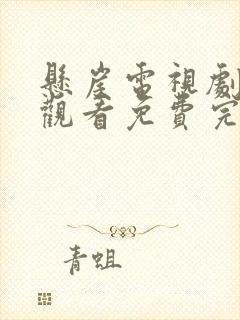 懸崖電視劇
觀看免費完
青蛆